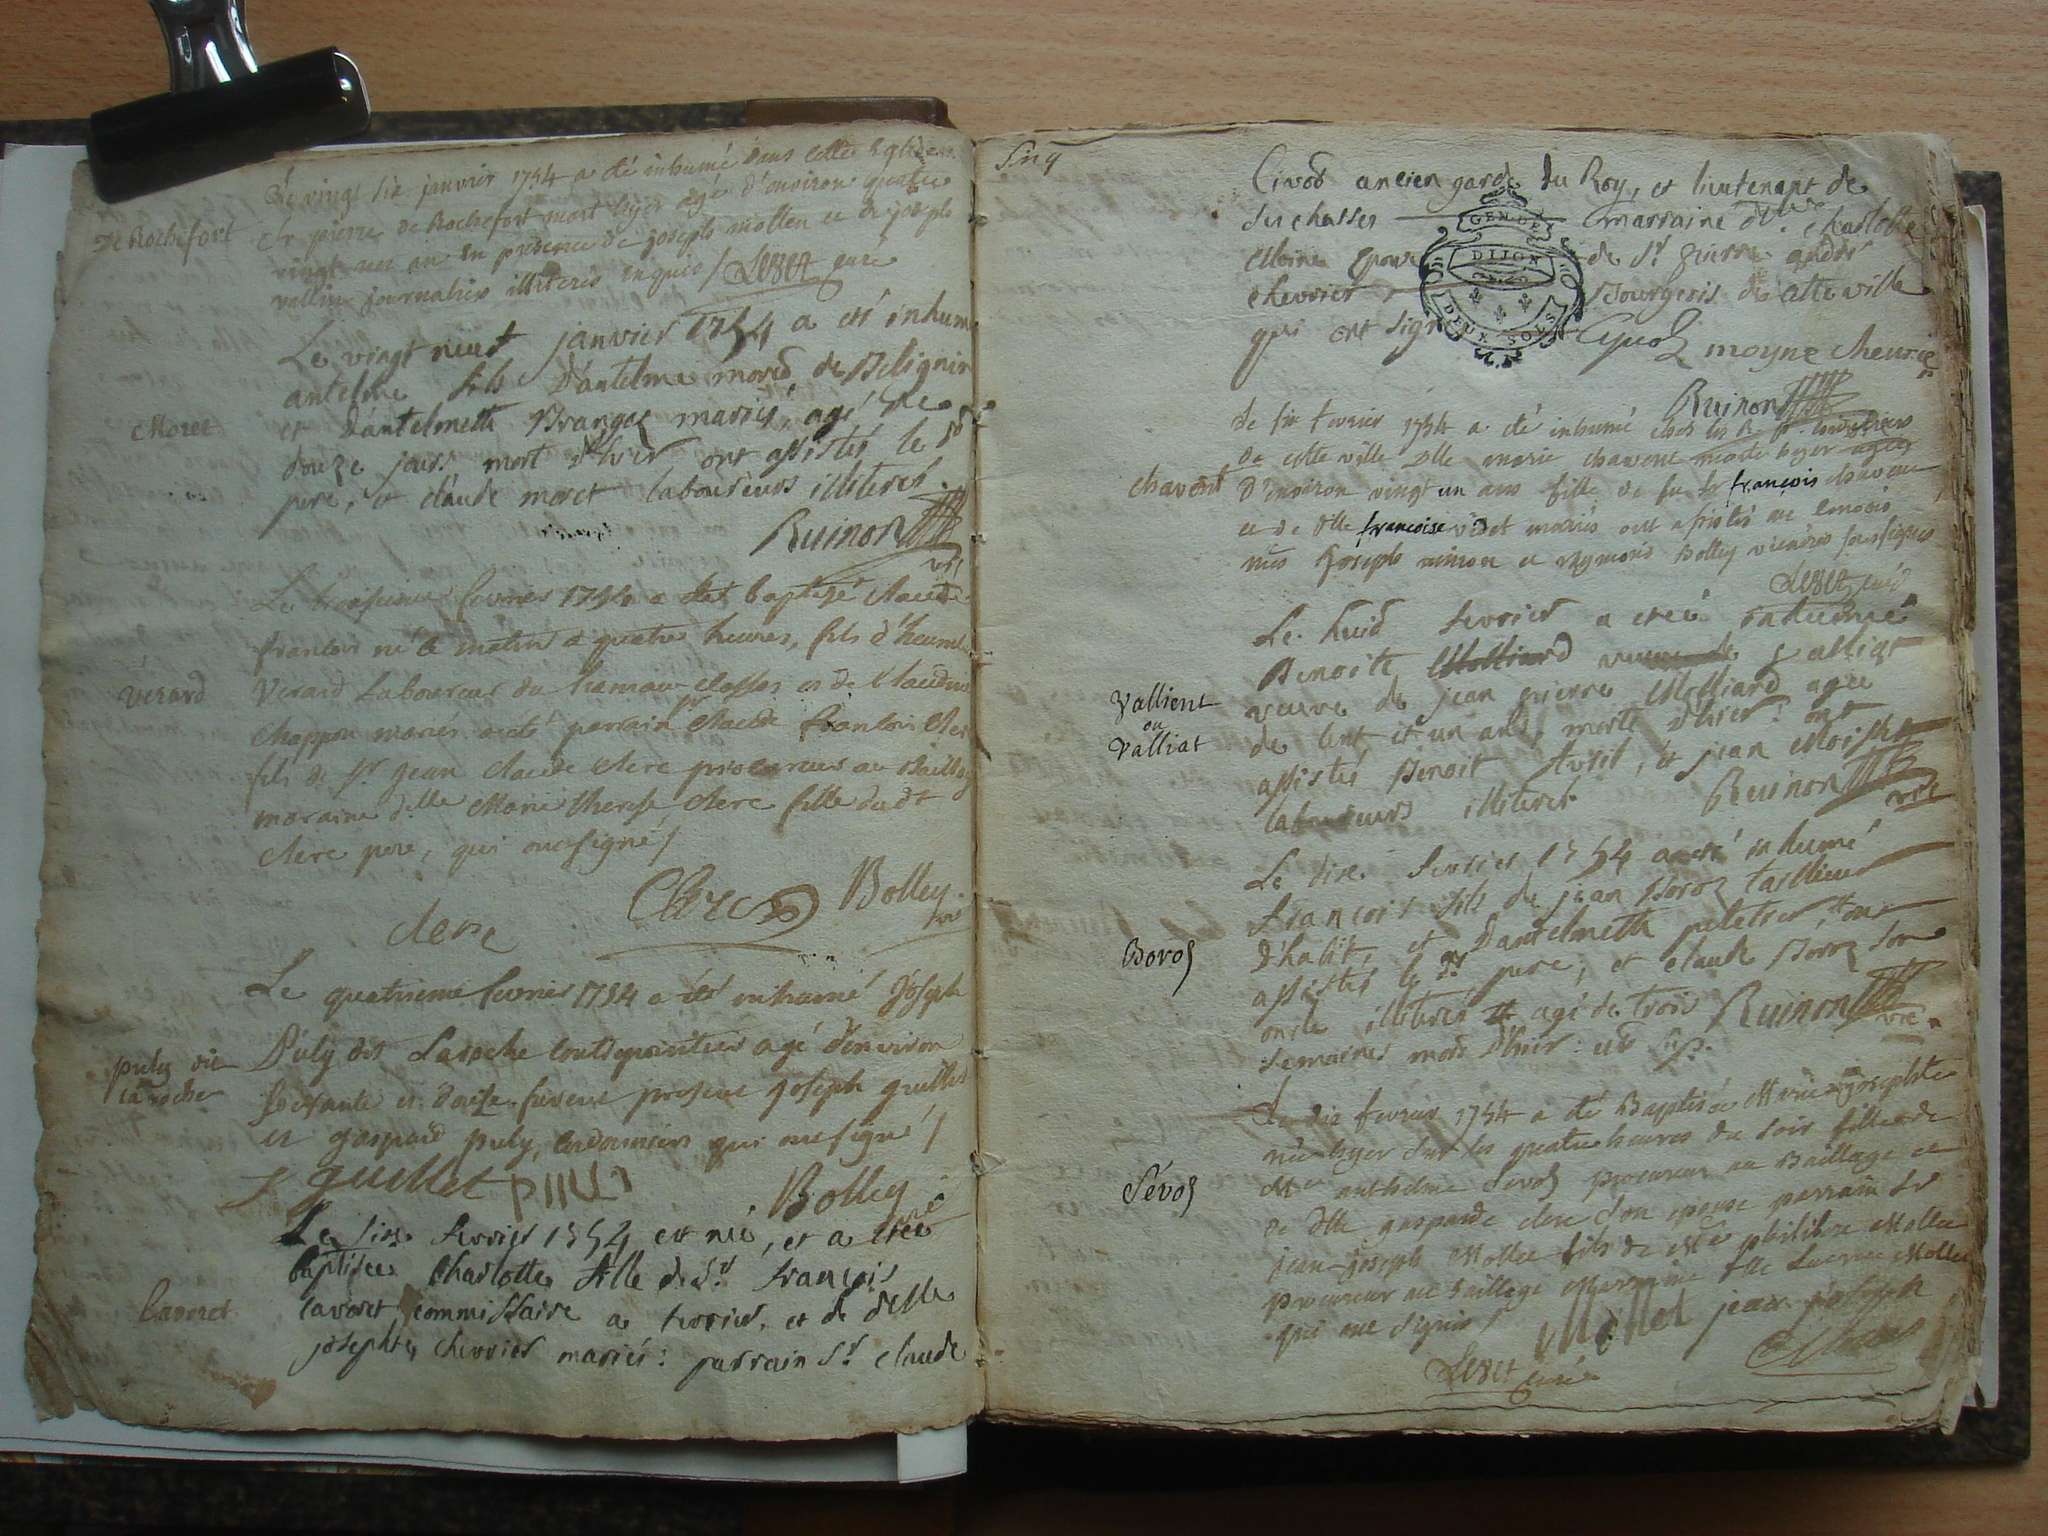 Le vingt six janvier 1754 a été inhumé dans cette Eglise
De Rochefort
Sr pierre de Rochefort mort hyer agé d'environ quatre
vingt un an en presence de joseph mollen et de joseph
vallin journaliers illiteres enquis / Lezet curé
Le vingt neuf janvier 1754 a eté inhumé
antelme fils d'antelme moret de Belignin
Moret
et d'antelmette Brangas mariés, agé de
douze jours mort d'hier ont assistés le dt
pere, et claude moret laboureurs illiterés.
Ruinon
vre
Le troisieme fevrier 1754 a etet baptizé claude
francois né le matin a quatre heures, fils d'honnete
vérard
Verard Laboureur du hameau et de Claudine
chappon mariés a eté parrain Sr Claude francois Clerc
fils de Sr jean claude clerc procureur au Baillage
maraine dlle Marie therese clerc fille dudt
clerc pere, qui ont signé /
Clerc Bolley
clerc vre
Le quatrieme fevrier 1754 a été inhumé joseph
puly dit
la roche
Puly dit Laroche agé d'environ
soixante et douze furent present joseph guillet
et gaspard puly, cordonniers qui ont signé /
J guillet puli
Bolley
vre
Le six fevrier 1754 est née, et a etée
baptisée Charlotte fille de Sr françois
Lavoret
lavoret commissaire a terrier, et de delle
josephte chevrier mariés: parrain Sr claude
Cinq
Civod ancien garde du Roy, et lieutenant de
des chasses marraine dlle charlotte
Moine epouse de Sr pierre andré
chevrier Bourgeois de cette ville
qui ont signé Cyvoz moyne chevrier
GEN. DE
DIJON
DEUX SOLS
Ruinon
Le six fevrier 1754 a été inhumé chés les R. P.
de cette ville Dlle marie chavent morte hyer agée
chavent
d'environ vingt un ans fille de fu Sr françois chavent
et de dlle francoise videt mariés ont assistés
Mrs joseph ruinon et Aymond Bolley vicaires soussignés
Lezet curé
Le huid fevrier a etée inhumée
Benoite Valliat
Vallient
ou
Valliat
veuve de jean pierre Molliard agée
de cent et un ans, morte d'hier: ont
assistés Benoit, et jean
laboureurs illiterés Ruinon
vre
Le dix fevrier 1754 a eté inhumé
françois fils de jean Boroz tailleur
Boroz
d'habit, et d'antelmette peletier ont
assistés le dt pere, et claude Boroz son
oncle illiterés agé de trois Ruinon
semaines mort d'hier: vre
Le dix fevrier 1754 a été Baptisée Marie josephte
née hyer sur les quatre heures du soir fille de
Sévoz
Me anthelme Sevoz procureur au Baillage et
de dlle gasparde clerc son epouse parrain Sr
jean joseph Mollet fils de Me philibert Mollet
procureur au baillage Marraine dlle Mollet
qui ont signés / Mollet jean joseph
Mollet
Lezet curé